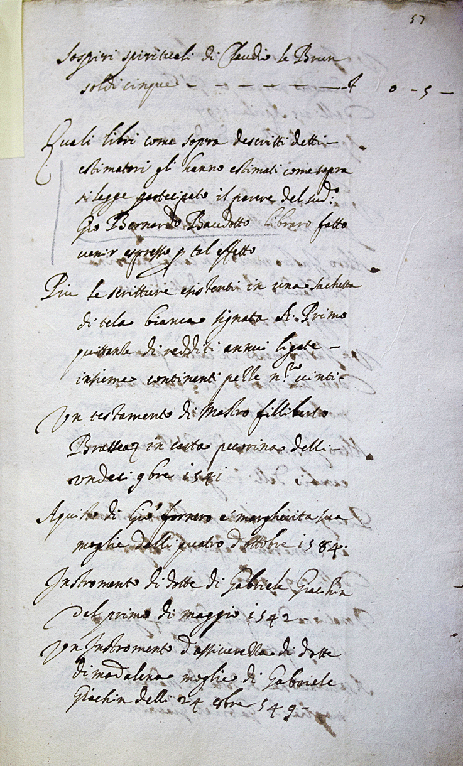 57
sospiri spirituali di Claudio le Brun
soldi cinque £ 0 - 5 -
Quali libri come sopra descritti detti
estimatori gli hanno estimati come sopra
si legge partecipato il parere del sud.o
Gio Bernardo Baudotto libraro fatto
venir espresso p tal effetto
Piu le scritture esistenti in una sachetta
di tela bianca signata A. Primo
quittanze di redditi annui ligate
insieme continenti pelle n.o vinti
Un testamento di Mastro filliberto
in carta pecorina delli
undeci 9bre 1581
Aquisto di Gio fornero e margherita sua
moglie delli quatro d'ottobre 1584.
Instromento di dotte di Gabriele Giachin
del primo di maggio 1542
Un Instromento d'assicuranza di dotte
di madalena moglie di Gabriele
Giachin delli 24 8bre 549